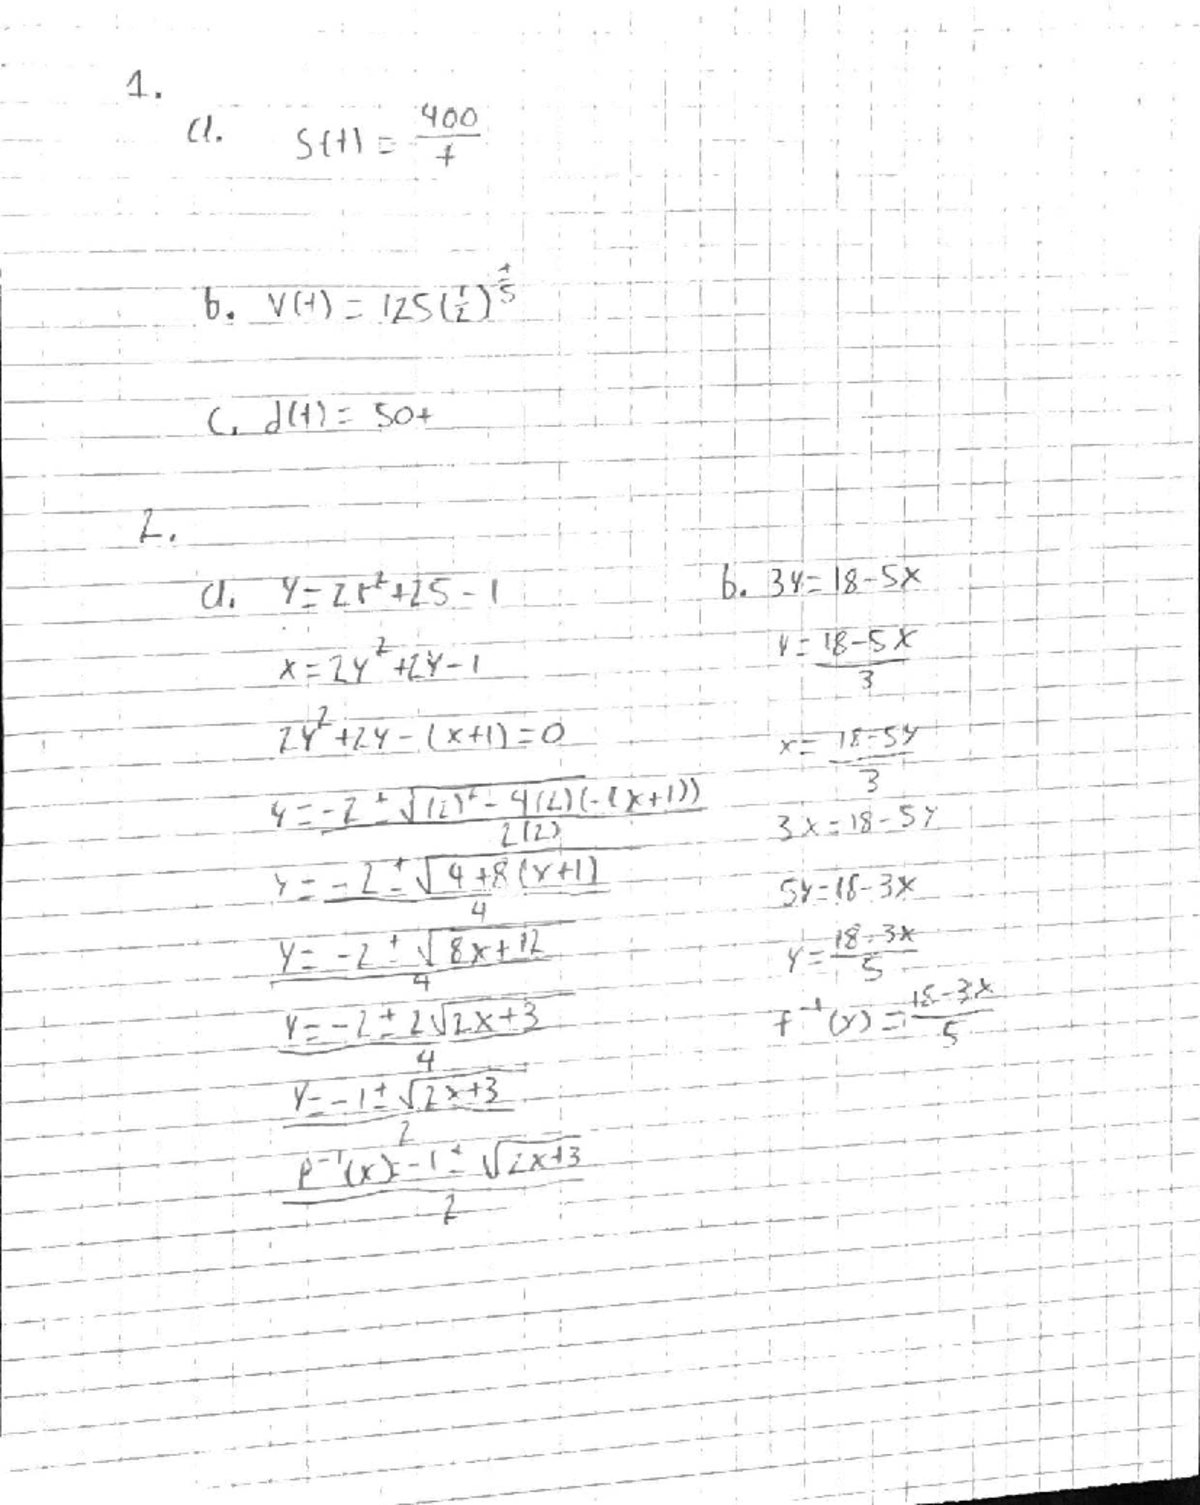 1.
a. S(t) = 400/t
b. V(t) = 125(1/2)^(t/5)
c. d(t) = 50t
2.
a. y = 2s² + 2s - 1
x = 2y² + 2y - 1
2y² + 2y - (x+1) = 0
y = -2 ± √((2)² - 4(2)(-(x+1))) / 2(2)
y = -2 ± √(4 + 8(x+1)) / 4
y = -2 ± √(8x + 12) / 4
y = -2 ± 2√(2x+3) / 4
y = -1 ± √(2x+3) / 2
p⁻¹(x) = -1 ± √(2x+3) / 2
b. 3y = 18 - 5x
y = 18 - 5x / 3
x = 18 - 5y / 3
3x = 18 - 5y
5y = 18 - 3x
y = 18 - 3x / 5
f⁻¹(x) = 18 - 3x / 5